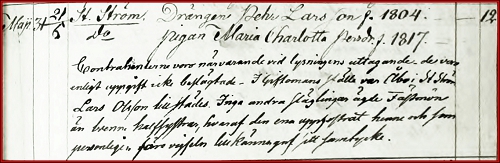 Maji 31 21/6 St. Ström. Drängen Pehr Larsson f. 1804. 12
do Pigan Maria Charlotta Persdr f. 1817.
Contrahenterne voro närvarande vid lysningens uttagande, de voro
enligt uppgift icke beslägtade. I Giftomans ställe var Åbo i St Ström
Lars Olsson tillstädes. Inga andra slägtingar ägde Fästmön
än tvenne halfsystrar, hvaraf den ena uppfostrat henne och hon
personligen före vigseln tillkännagaf sitt samtycke.